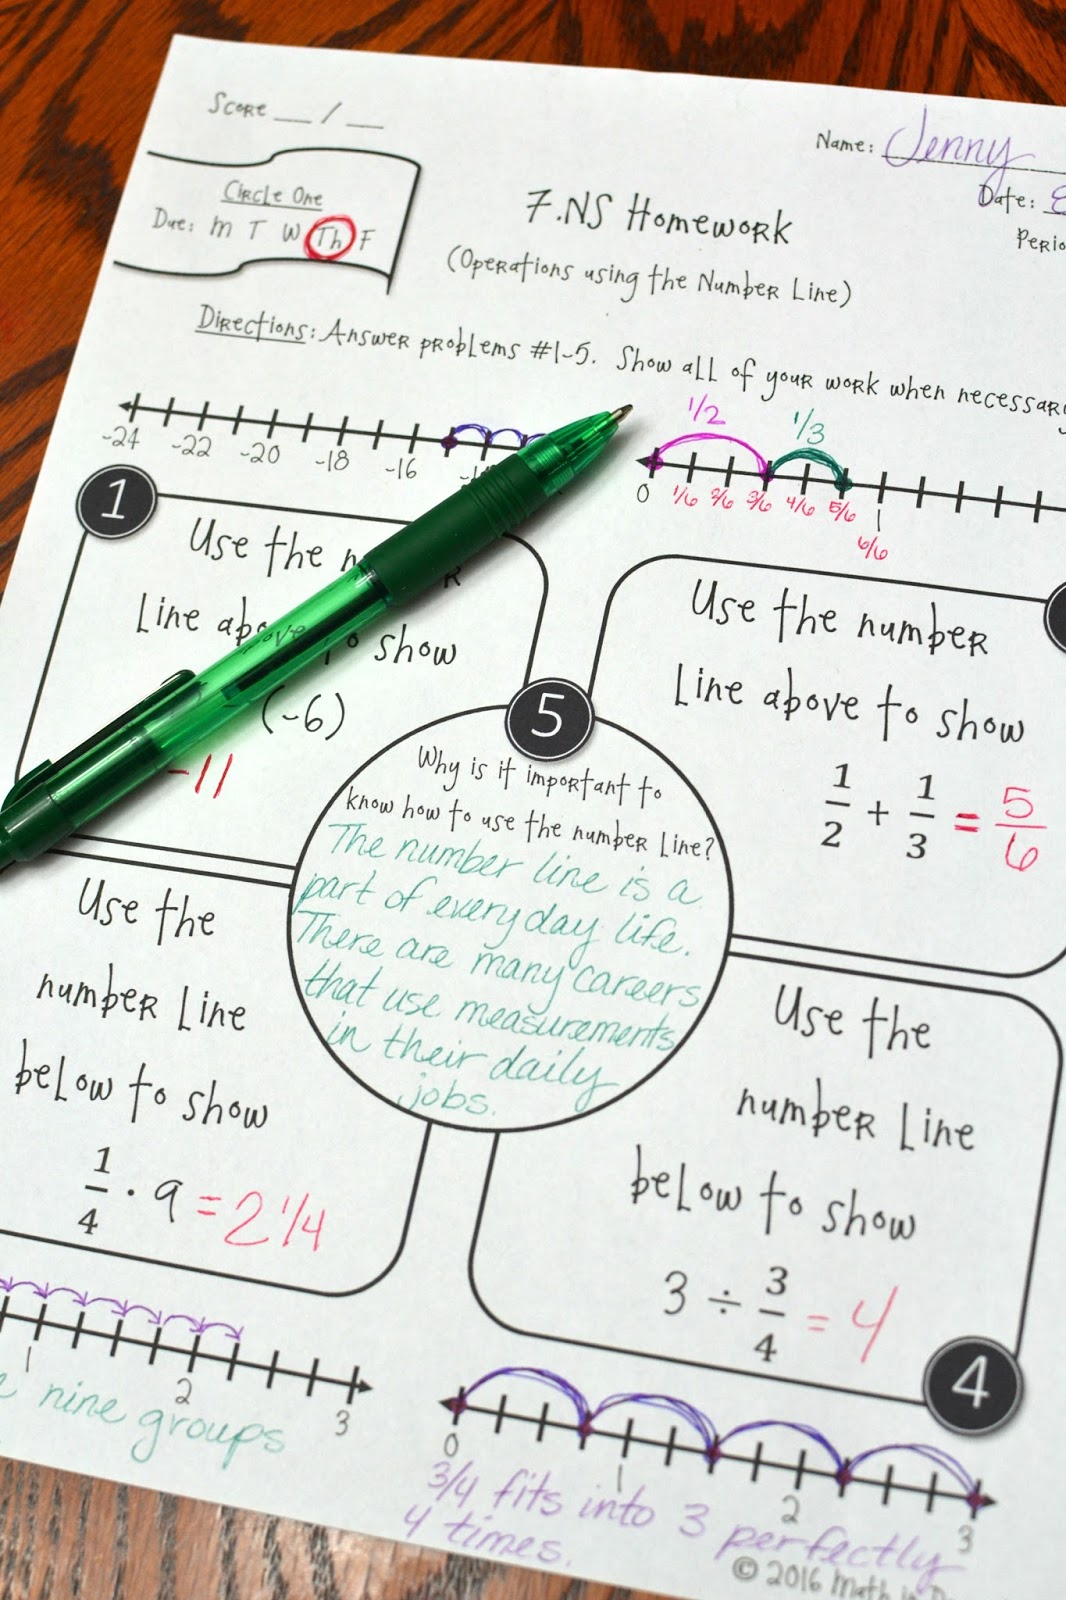 Score __ / __
Circle One
Due: M T W Th F
Name: Jenny
Date:
7.NS Homework
(Operations using the Number Line)
Directions: Answer problems #1-5. Show all of your work when necessary
-24 -22 -20 -18 -16
1/2 1/3
0 1/6 2/6 3/6 4/6 5/6 1
6/6
1
Use the
Line above to show
(-6)
-11
Use the number
Line above to show
1/2 + 1/3 = 5/6
5
Why is it important to
know how to use the number line?
The number line is a
part of everyday life.
There are many careers
that use measurements
in their daily
jobs.
Use the
number Line
below to show
1/4 · 9 = 2 1/4
1 2 3
nine groups
Use the
number Line
below to show
3 ÷ 3/4 = 4
4
0 1 2 3
3/4 fits into 3 perfectly
4 times.
© 2016 Math in